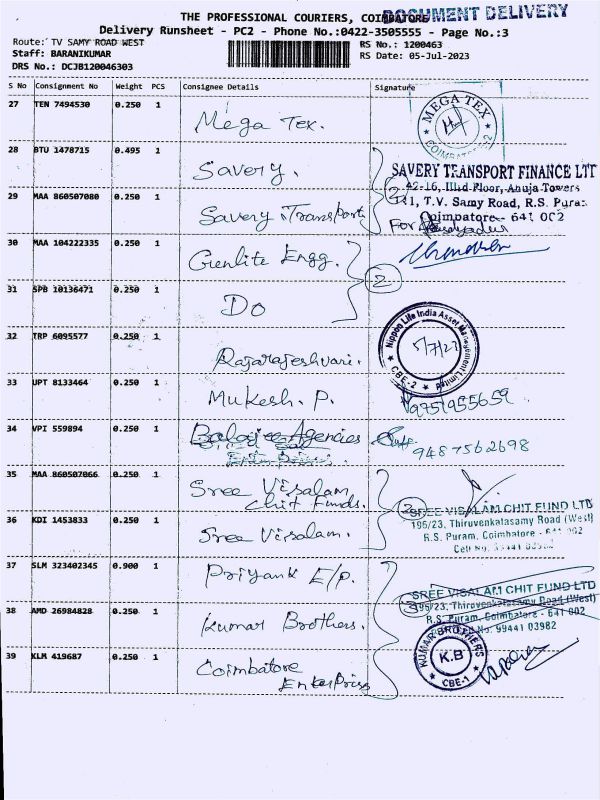 THE PROFESSIONAL COURIERS, COIMBATORE
DOCUMENT DELIVERY
Delivery Runsheet - PC2 - Phone No.:0422-3505555 - Page No.:3
Route: TV SAMY ROAD WEST
RS No.: 1200463
Staff: BARANIKUMAR
RS Date: 05-Jul-2023
DRS No.: DCJB120046303
S No Consignment No Weight PCS Consignee Details Signature
27 TEN 7494530 0.250 1 Mega Tex.
MEGA TEX
COIMBATORE-2
28 BTU 1478715 0.495 1 Savery.
SAVERY TRANSPORT FINANCE LTD
42-16, IIIrd Floor, Anuja Towers
141, T.V. Samy Road, R.S. Puram
Coimbatore - 641 002
29 MAA 860507080 0.250 1 Savery Transport
2
For
30 MAA 104222335 0.250 1 Genlite Engg.
2
31 SPB 10136471 0.250 1 Do
32 TRP 6095577 0.250 1 Rajarajeshwari.
Nippon Life India Asset Management Limited
5/7/23
CBE-2
33 UPT 8133464 0.250 1 Mukesh. P.
9951955659
34 VPI 559894 0.250 1 Balajee Agencies
9487562698
35 MAA 860507066 0.250 1 Sree Visalam
Chit Funds.
2
SREE VISALAM CHIT FUND LTD
195/23, Thiruvenkatasamy Road (West)
R.S. Puram, Coimbatore - 641 002
Cell No.
36 KDI 1453833 0.250 1 Sree Visalam.
37 SLM 323402345 0.900 1 Priyank E/P.
SREE VISALAM CHIT FUND LTD
195/23, Thiruvenkatasamy Road (West)
R.S. Puram, Coimbatore - 641 002
No. 99441 03982
3
38 AMD 26984828 0.250 1 Kumar Brothers.
KUMAR BROTHERS
K.B
CBE-1
39 KLM 419687 0.250 1 Coimbatore
Enterprises